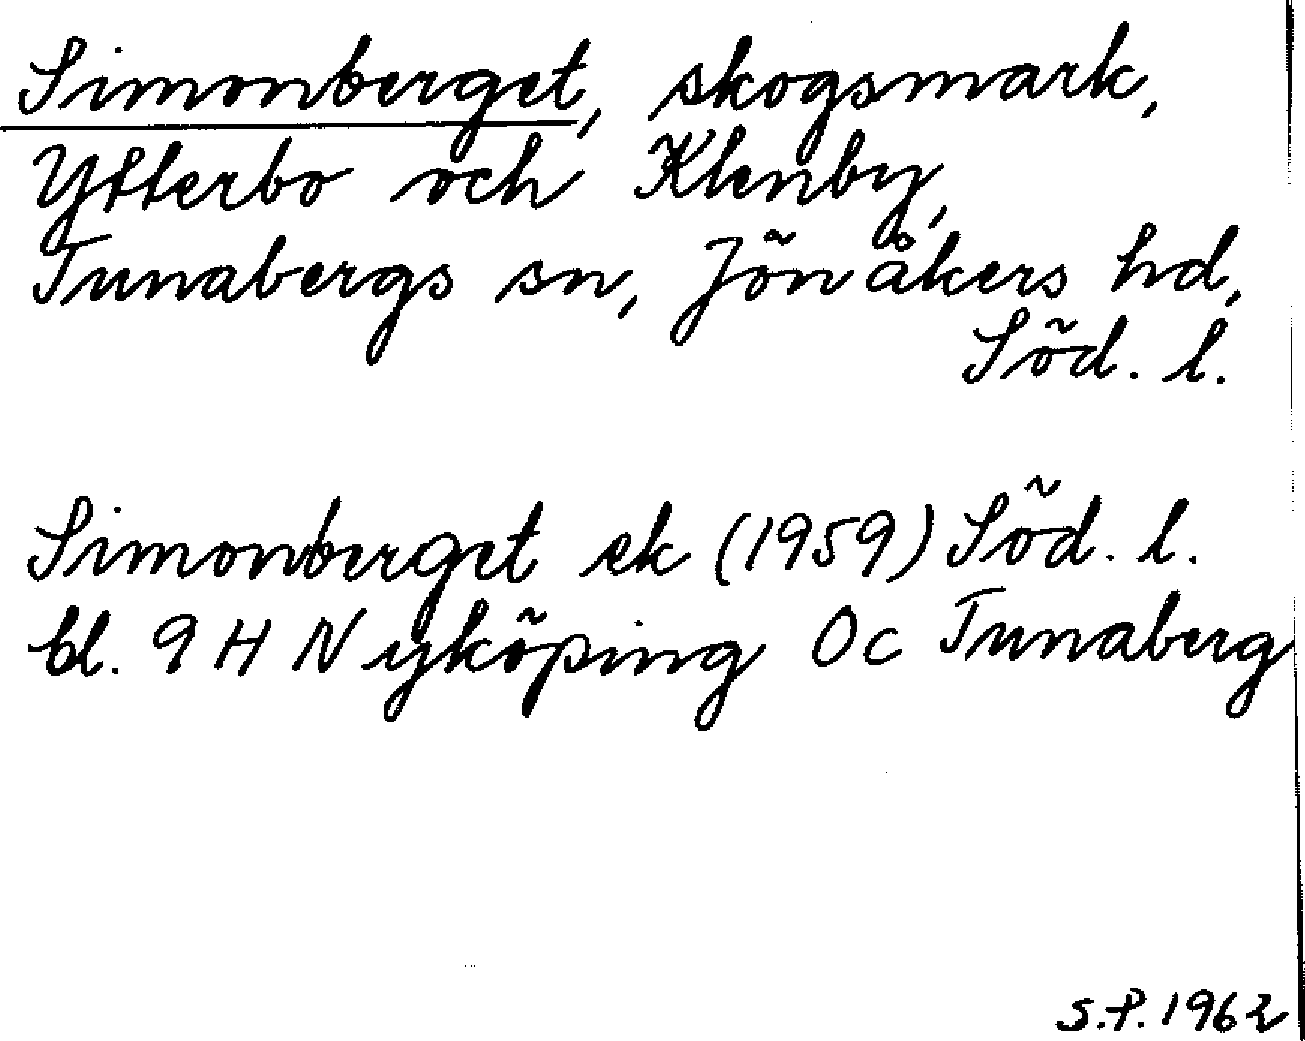 Simonberget, skogsmark,
Ytterbo och Klenby,
Tunabergs sn, Jönåkers hd,
Söd. l.
Simonberget ek (1959) Söd. l.
bl. 9 H Nyköping Oc Tunaberg
S.P. 1962